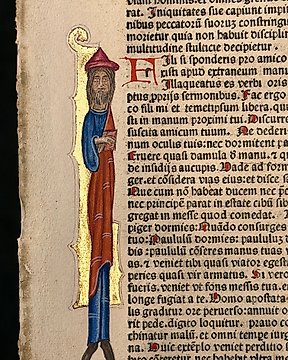 rat. Iniquitates sue capiunt impi
nibus peccatorū suorū constring
morietur quia non habuit disciplin
multitudine stulticie decipietur
Fili si sponderis pro amico
xisti apud extraneum manu
Illaqueatus es verbis oris
ptus ꝓprijs sermonibus. Fac ergo
co fili mi et temetipsum libera. qui
sti in manum proximi tui. Discurr
suscita amicum tuum. Ne dederi
num oculis tuis: nec dormitent p
Eruere quasi damula d' manu. et q
de insidijs aucupis. Vade ad form
ger. et cōsidera vias eius et disce s
Que cum nō habeat ducem nec p̄c
nec principē parat in estate cibū sib
gregat in messe quod comedat.
piger dormies: Quādo consurges
tuo: Paululū dormies: paululū
bis: paululū cōseres manus tuas
as. et veniet tibi quasi viator egest
peries quasi vir armatus. Si vero
fueris. veniet vt fons messis tua.
longe fugiat a te. Homo apostata
lis graditur ore peruerso: annuit
rit pede. digito loquitur. prauo co
chinatur malū. et omni tempe iurg
nat. Huic extēplo veniet perditio